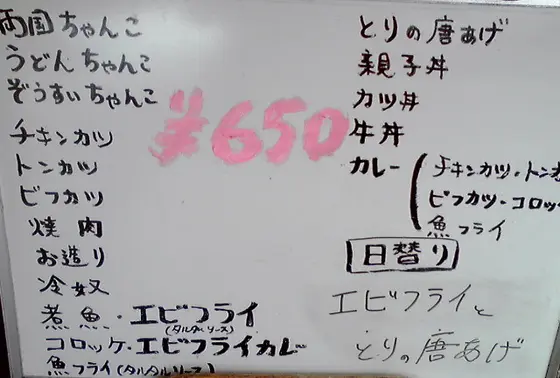 両国ちゃんこ
うどんちゃんこ
ぞうすいちゃんこ
チキンカツ
トンカツ
ビフカツ
焼肉
お造り
冷奴
煮魚・エビフライ
(タルタルソース)
コロッケ・エビフライカレー
魚フライ(タルタルソース)
¥650
とりの唐あげ
親子丼
カツ丼
牛丼
カレー
チキンカツ・トン
ビフカツ・コロッ
魚フライ
日替り
エビフライと
とりの唐あげ